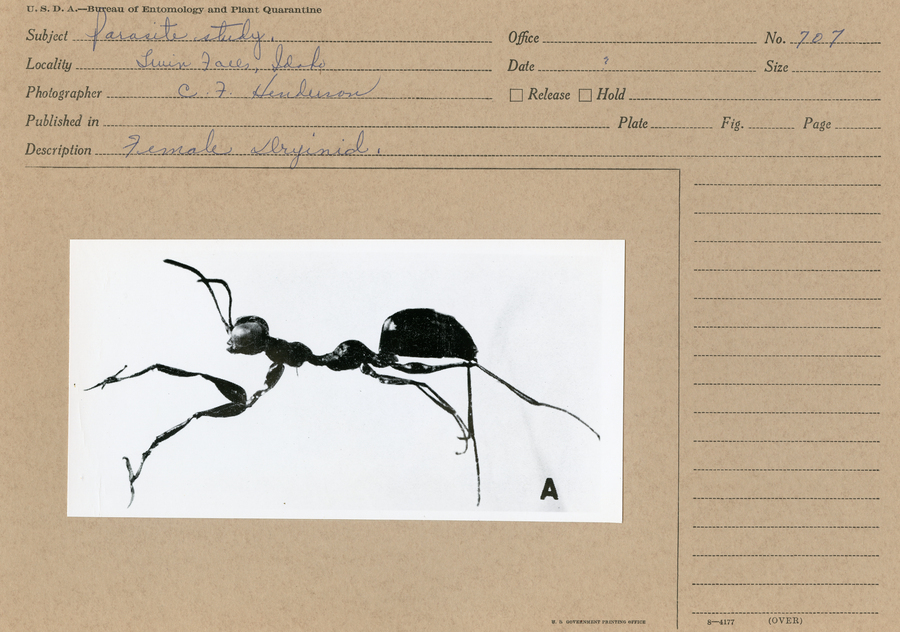 U. S. D. A.—Bureau of Entomology and Plant Quarantine
Subject Parasite study. Office No. 707
Locality Twin Falls, Idaho Date ? Size
Photographer C. F. Henderson Release Hold
Published in Plate Fig. Page
Description Female Dryinid.
A
U. S. GOVERNMENT PRINTING OFFICE 8—4177 (OVER)